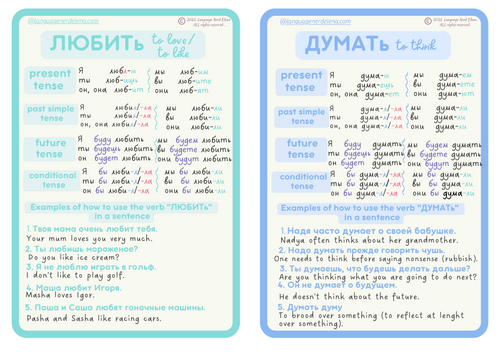 @languagenerdelena.com
© 2022 Language Nerd Elena
All rights reserved.
ЛЮБИТЬ to love/
to like
present
tense
Я люблю мы люб-им
ты люб-ишь вы люб-ите
он, она люб-ит они люб-ят
past simple
tense
Я любил/-ла мы люби-ли
ты любил/-ла вы люби-ли
он, она любил/-ла они люби-ли
future
tense
Я буду любить мы будем любить
ты будешь любить вы будете любить
он, она будет любить они будут любить
conditional
tense
Я бы любил/-ла мы бы люби-ли
ты бы любил/-ла вы бы люби-ли
он бы любил/-ла они бы люби-ли
Examples of how to use the verb "ЛЮБИТЬ"
in a sentence
1. Твоя мама очень любит тебя.
Your mum loves you very much.
2. Ты любишь мороженое?
Do you like ice cream?
3. Я не люблю играть в гольф.
I don't like to play golf.
4. Маша любит Игоря.
Masha loves Igor.
5. Паша и Саша любят гоночные машины.
Pasha and Sasha like racing cars.
@languagenerdelena.com
© 2022 Language Nerd Elena
All rights reserved.
ДУМАТЬ to think
present
tense
Я дума-ю мы дума-ем
ты дума-ешь вы дума-ете
он, она дума-ет они дума-ют
past simple
tense
Я дума-л/-ла мы дума-ли
ты дума-л/-ла вы дума-ли
он, она дума-л/-ла они дума-ли
future
tense
Я буду думать мы будем думать
ты будешь думать вы будете думать
он, она будет думать они будут думать
conditional
tense
Я бы дума-л/-ла мы бы дума-ли
ты бы дума-л/-ла вы бы дума-ли
он бы дума-л/-ла они бы дума-ли
Examples of how to use the verb "ДУМАТЬ"
in a sentence
1. Надя часто думает о своей бабушке.
Nadya often thinks about her grandmother.
2. Надо думать прежде говорить чушь.
One needs to think before saying nonsense (rubbish).
3. Ты думаешь, что будешь делать дальше?
Are you thinking what you are going to do next?
4. Он не думает о будущем.
He doesn't think about the future.
5. Думать думу
To brood over something (to reflect at lenght
over something).